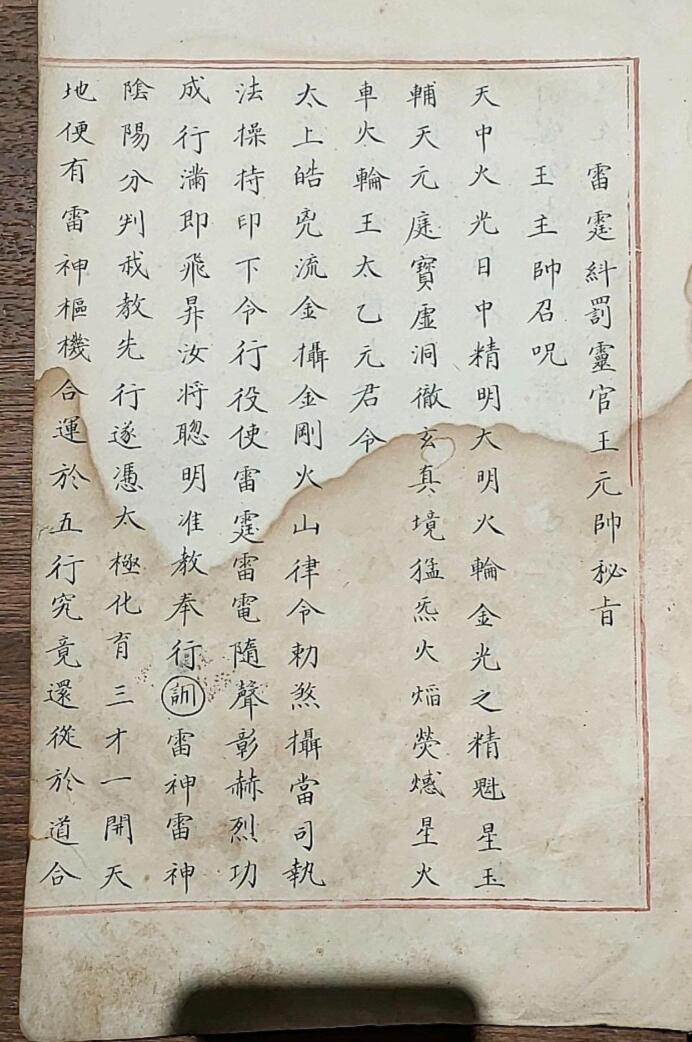 雷霆糾罰靈官王元帥秘旨
王主帥召呪
天中火光日中精明大明火輪金光之精魁星玉
輔天元庭寶虛洞徹玄真境猛炁火焰熒惑星火
車火輪王太乙元君令
太上皓兇流金攝金剛火山律令勅煞攝當司執
法操持印下令行役使雷霆雷電隨聲彰赫烈功
成行滿即飛昇汝將聰明准教奉行訓雷神雷神
陰陽分判我教先行遂憑太極化育三才一開天
地便有雷神樞機合運於五行究竟還從於道合